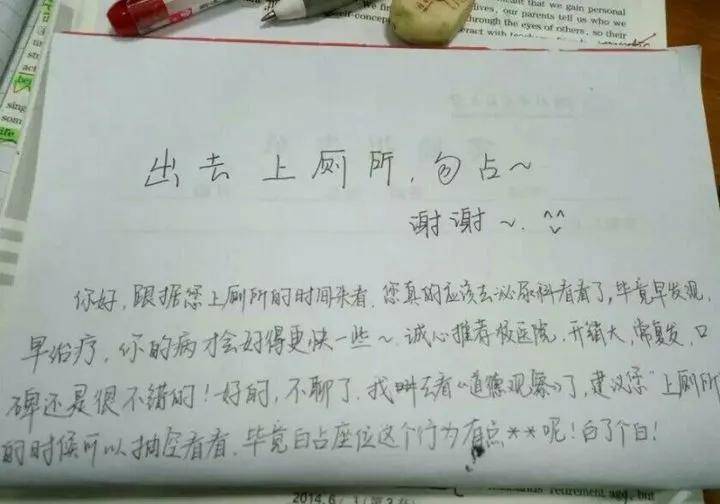 that we gain personal
lives, our parents tell us who we
self-concep through the eyes of others, so their
出去上厕所,勿占~
谢谢~.
你好,跟据您上厕所的时间来看,您真的应该去泌尿科看看了,毕竟早发现,
早治疗,你的病才会好得更快一些~诚心推荐医院,开销大,常复发,口
碑还是很不错的!好的,不聊了,我去看《道德观察》了,建议您"上厕所"
的时候可以抽空看看,毕竟白占座位这个行为有点**呢!白了个白!
2014.6
retirement age, but